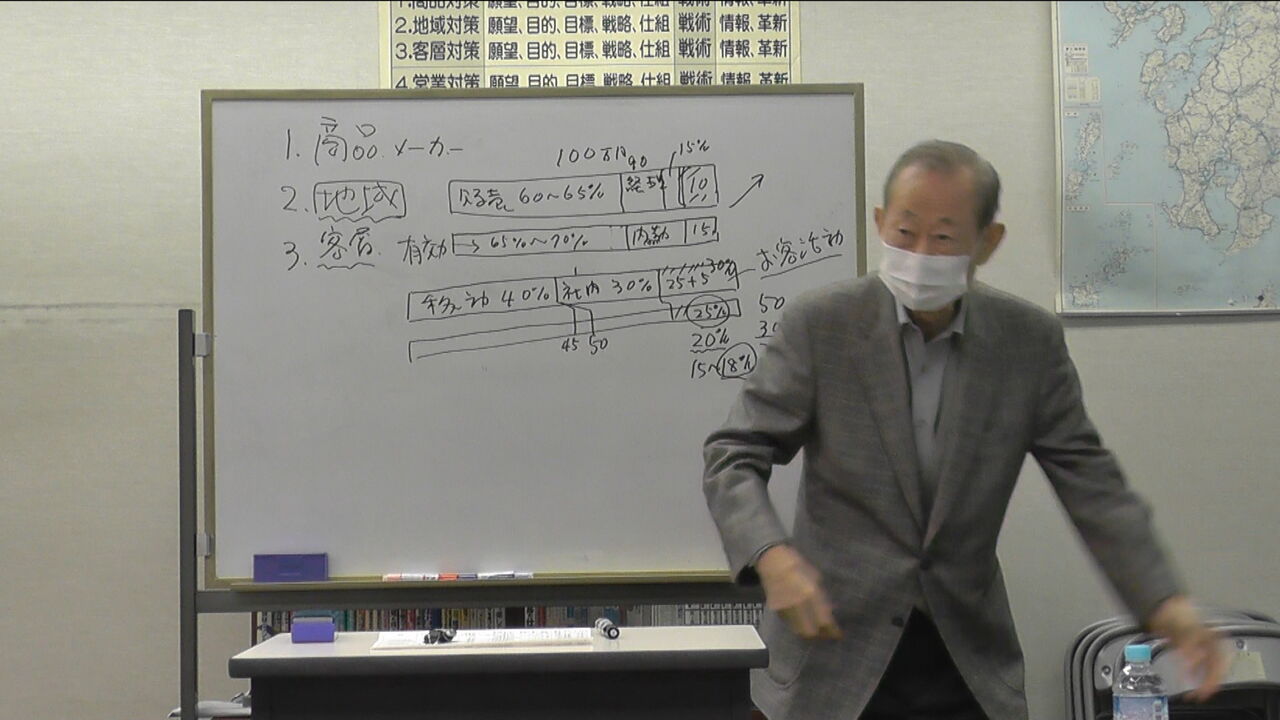 1.商品対策 願望、目的、目標、戦略、仕組 戦術 情報、革新
2.地域対策 願望、目的、目標、戦略、仕組 戦術 情報、革新
3.客層対策 願望、目的、目標、戦略、仕組 戦術 情報、革新
4.営業対策 願望、目的、目標、戦略、仕組 戦術 情報、革新
1. 商品. メーカー
100万円 90 15%
2. 地域 60~65% 10
3. 客層. 有効 → 65%~70% 内勤 15
お客活動
移動 40% 社内 30% 25+5 30%
25% 50
45 50 20%
15~18%